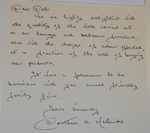 Dear Bob
We are highly delighted with
the quality of the work carried out
on our lounge and bedroom furniture,
also with the change of colour effected,
at a fraction of the cost of buying
new products.
It was a pleasure to do
business with your small friendly
family firm.
Yours sincerely